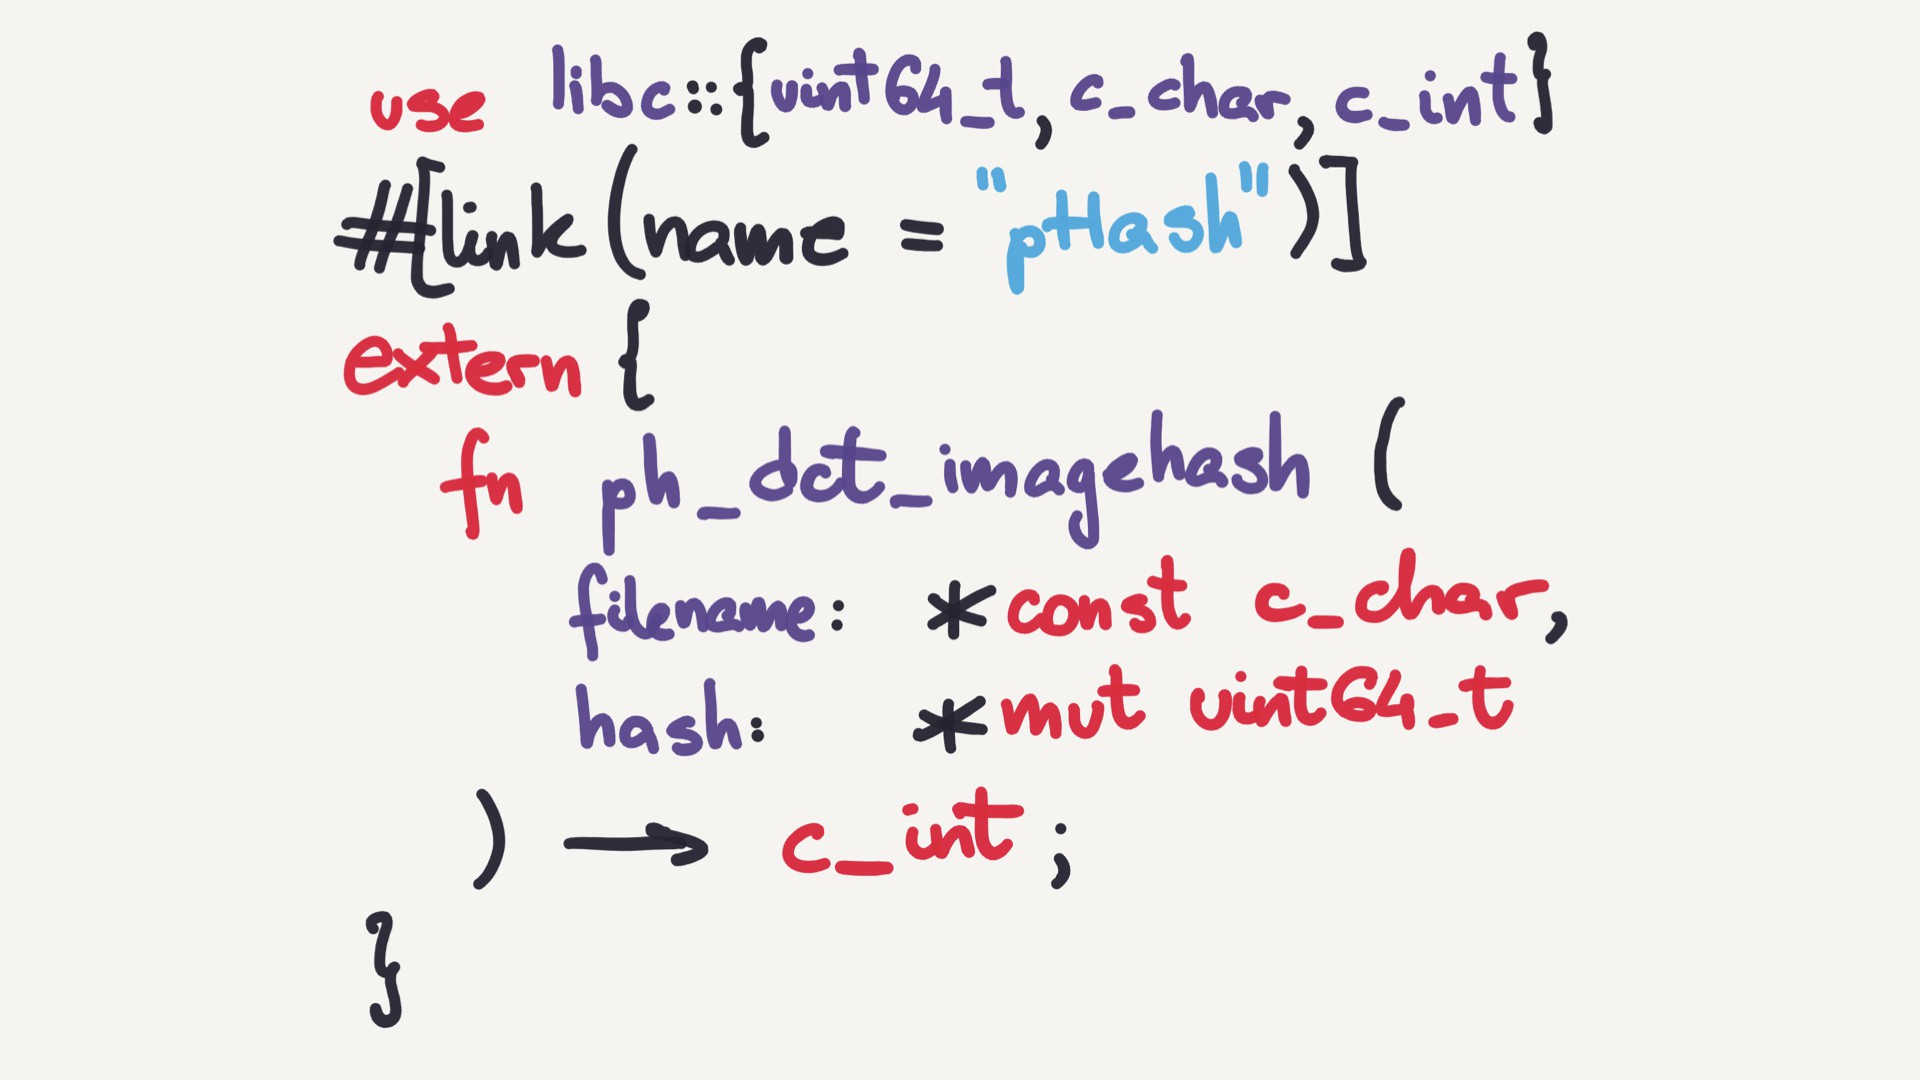 use libc::{uint64_t, c_char, c_int}
#[link(name = "pHash")]
extern {
fn ph_dct_imagehash (
filename: *const c_char,
hash: *mut uint64_t
) → c_int ;
}